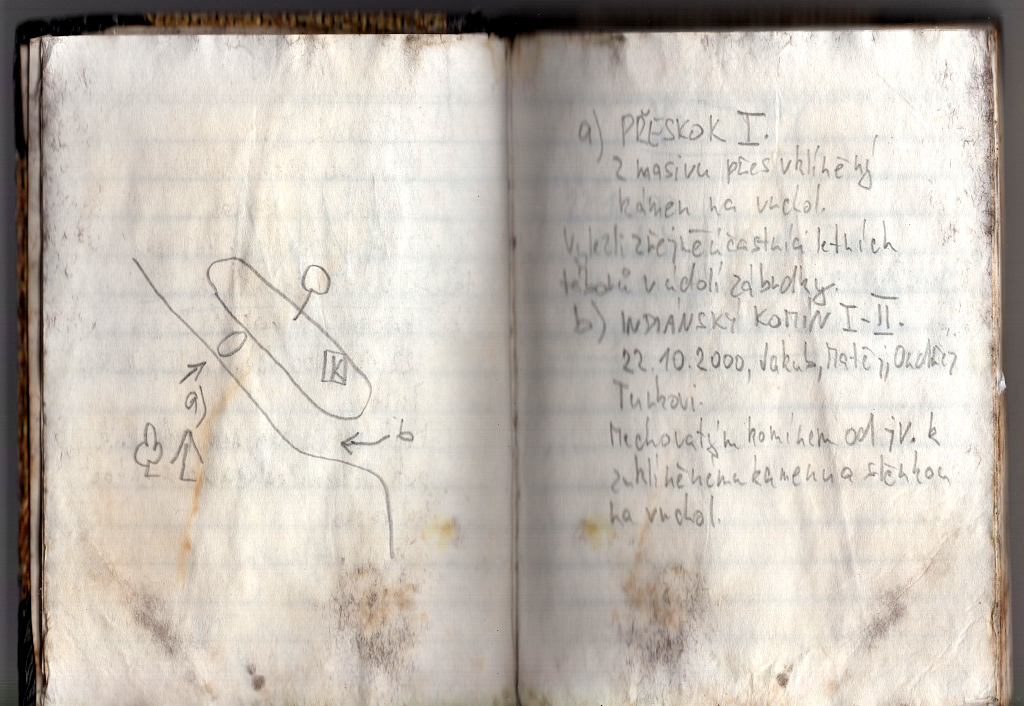 K
a)
b
a) PŘESKOK I.
z masivu přes vklíněný
kámen na vrchol.
Vylezli zřejmě účastníci letních
táborů v údolí zábrdky.
b) INDIÁNSKÝ KOMÍN I-II.
22.10.2000, Jakub, Matěj, Ondřej
Turkovi.
Mechovatým komínem od jv. k
zaklíněnému kamenu a stěnkou
na vrchol.